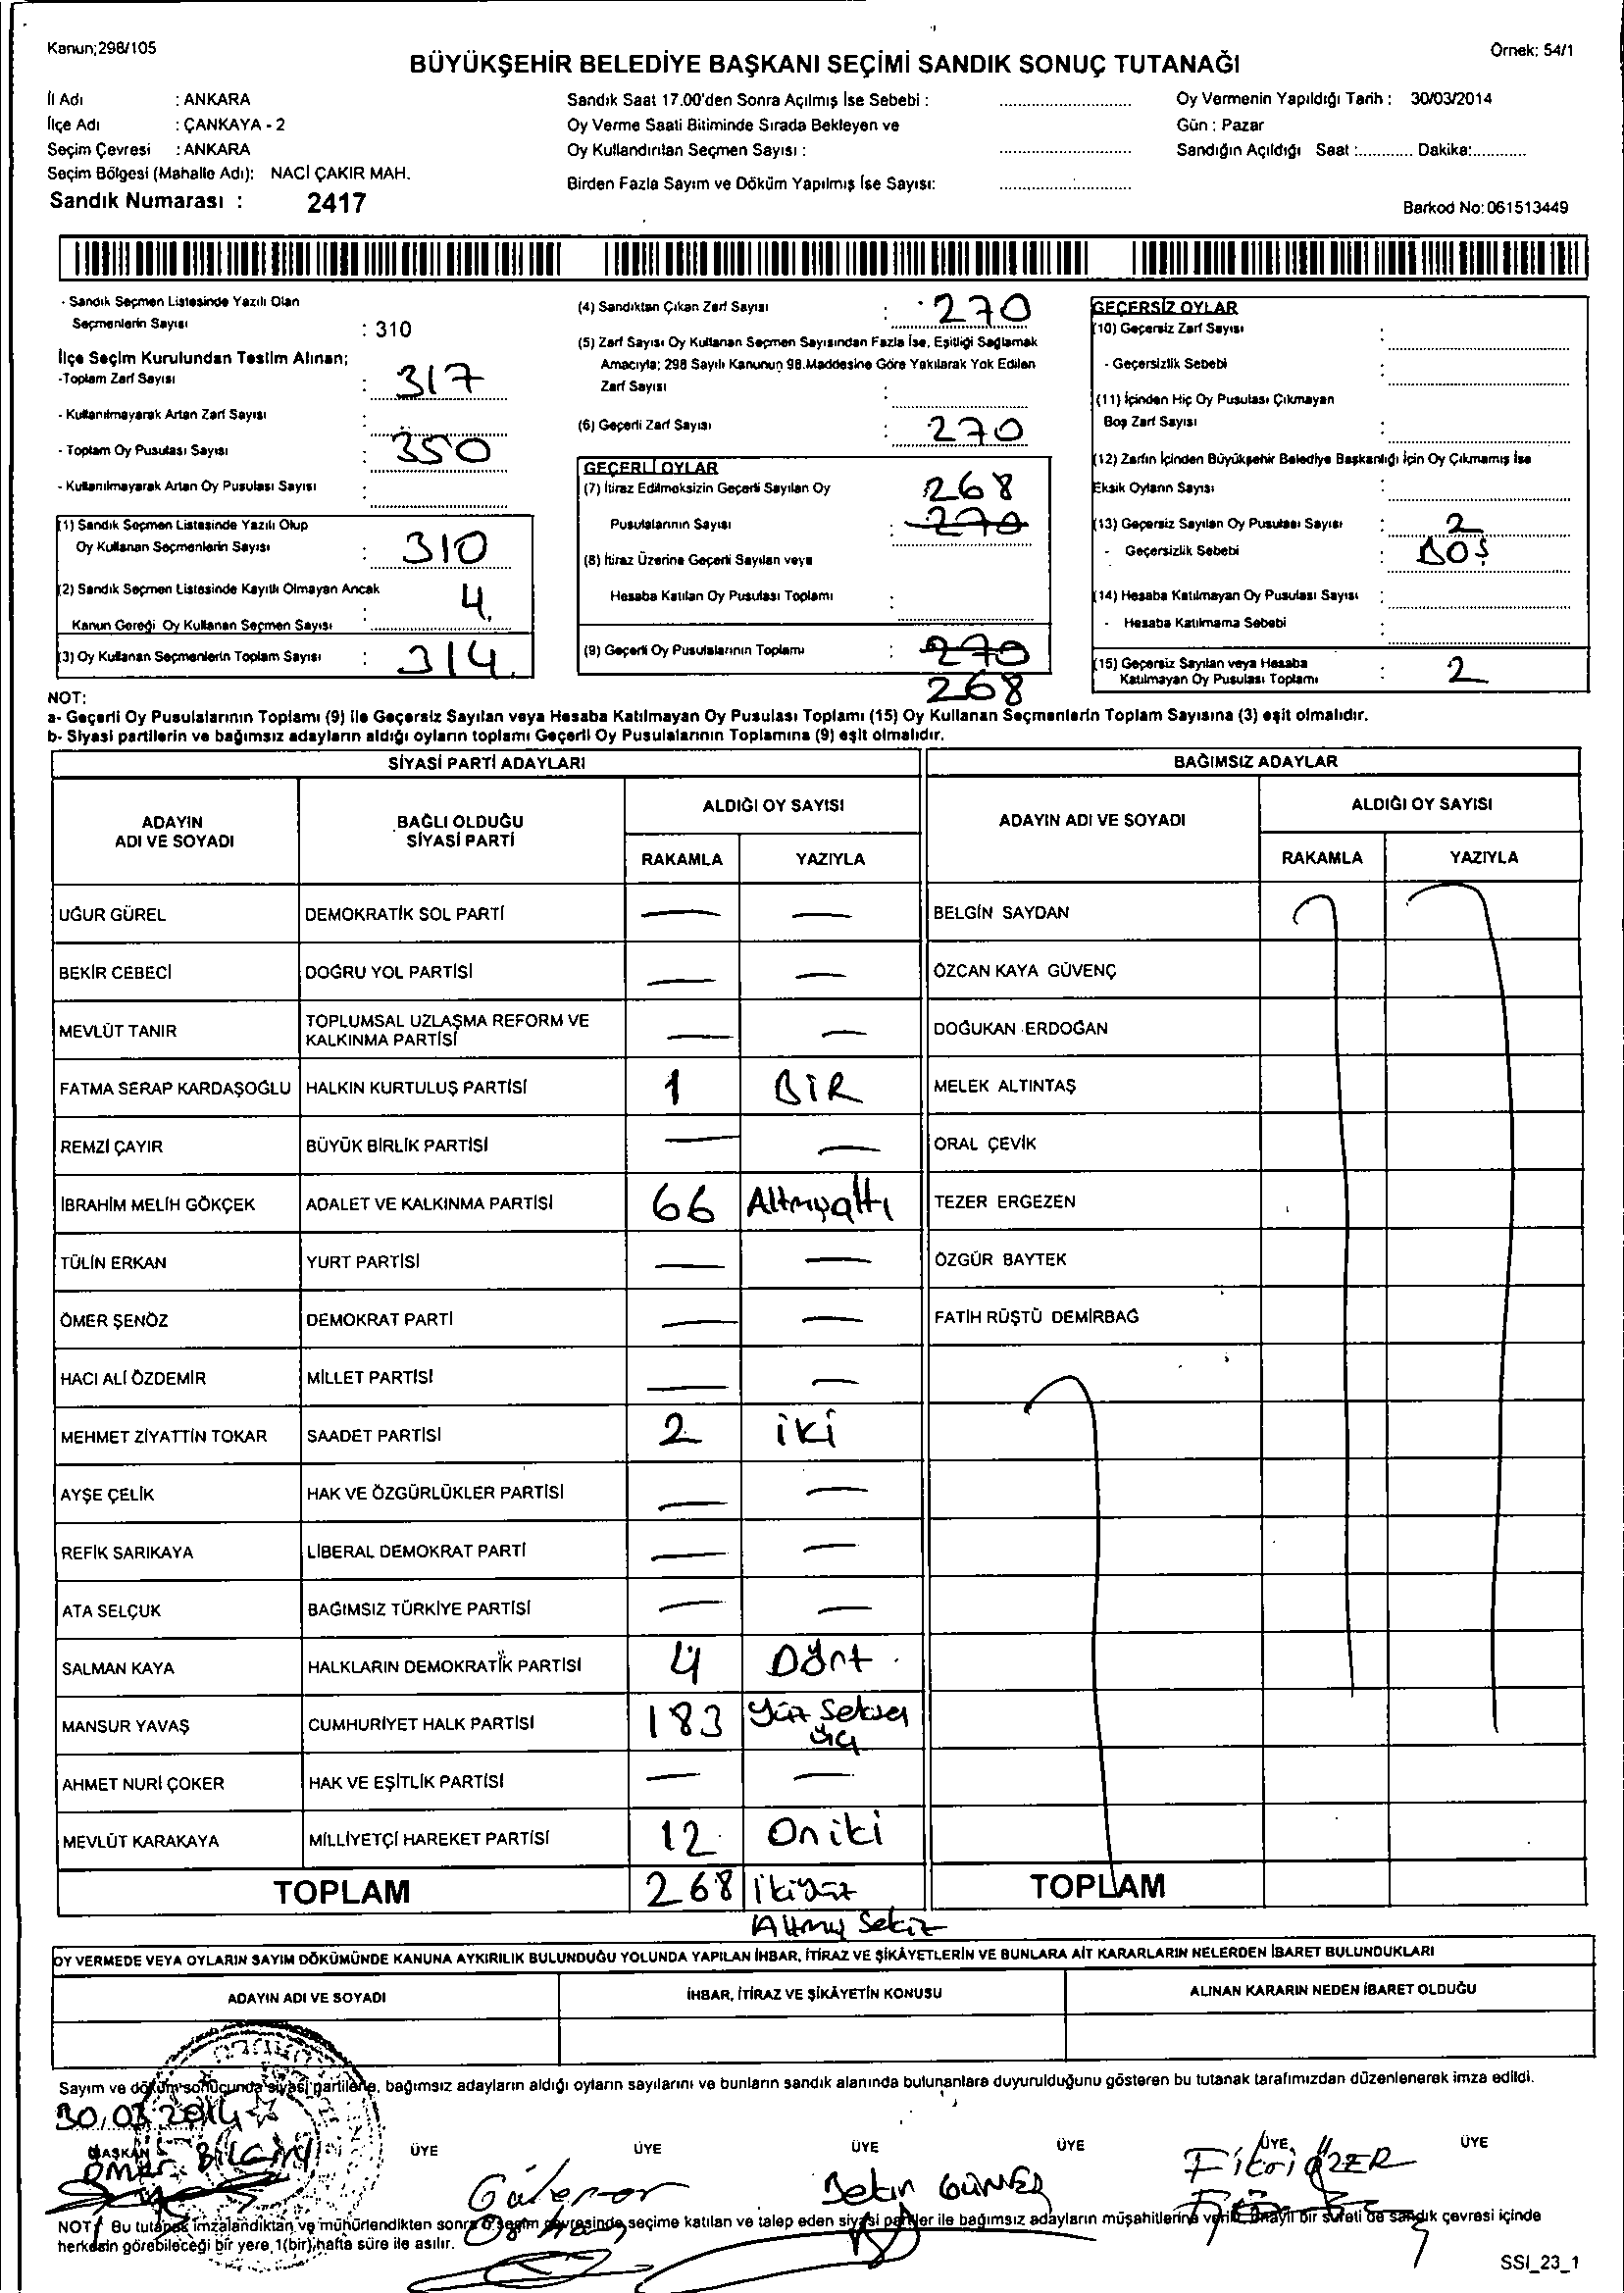 Kanun;298/105
Örnek: 54/1
BÜYÜKŞEHİR BELEDİYE BAŞKANI SEÇİMİ SANDIK SONUÇ TUTANAĞI
İl Adı : ANKARA
İlçe Adı : ÇANKAYA - 2
Seçim Çevresi : ANKARA
Seçim Bölgesi (Mahalle Adı): NACİ ÇAKIR MAH.
Sandık Numarası : 2417
Sandık Saat 17.00'den Sonra Açılmış İse Sebebi :
Oy Verme Saati Bitiminde Sırada Bekleyen ve
Oy Kullandırılan Seçmen Sayısı :
Birden Fazla Sayım ve Döküm Yapılmış İse Sayısı:
Oy Vermenin Yapıldığı Tarih : 30/03/2014
Gün : Pazar
Sandığın Açıldığı Saat :............ Dakika:............
Barkod No:061513449
- Sandık Seçmen Listesinde Yazılı Olan
Seçmenlerin Sayısı : 310
İlçe Seçim Kurulundan Teslim Alınan;
-Toplam Zarf Sayısı : 317
- Kullanılmayarak Artan Zarf Sayısı :
- Toplam Oy Pusulası Sayısı : 350
- Kullanılmayarak Artan Oy Pusulası Sayısı :
(1) Sandık Seçmen Listesinde Yazılı Olup
Oy Kullanan Seçmenlerin Sayısı : 310
(2) Sandık Seçmen Listesinde Kayıtlı Olmayan Ancak
Kanun Gereği Oy Kullanan Seçmen Sayısı : 4
(3) Oy Kullanan Seçmenlerin Toplam Sayısı : 314
(4) Sandıktan Çıkan Zarf Sayısı : 270
(5) Zarf Sayısı Oy Kullanan Seçmen Sayısından Fazla İse, Eşitliği Sağlamak
Amacıyla; 298 Sayılı Kanunun 98.Maddesine Göre Yakılarak Yok Edilen
Zarf Sayısı :
(6) Geçerli Zarf Sayısı : 270
GEÇERLİ OYLAR
(7) İtiraz Edilmeksizin Geçerli Sayılan Oy 268
Pusulalarının Sayısı : 270
(8) İtiraz Üzerine Geçerli Sayılan veya
Hesaba Katılan Oy Pusulası Toplamı :
(9) Geçerli Oy Pusulalarının Toplamı : 270
268
GEÇERSİZ OYLAR
(10) Geçersiz Zarf Sayısı :
- Geçersizlik Sebebi :
(11) İçinden Hiç Oy Pusulası Çıkmayan
Boş Zarf Sayısı :
(12) Zarfın İçinden Büyükşehir Belediye Başkanlığı İçin Oy Çıkmamış İse
Eksik Oyların Sayısı :
(13) Geçersiz Sayılan Oy Pusulası Sayısı : 2
- Geçersizlik Sebebi : BOŞ
(14) Hesaba Katılmayan Oy Pusulası Sayısı :
- Hesaba Katılmama Sebebi :
(15) Geçersiz Sayılan veya Hesaba
Katılmayan Oy Pusulası Toplamı : 2
NOT:
a- Geçerli Oy Pusulalarının Toplamı (9) ile Geçersiz Sayılan veya Hesaba Katılmayan Oy Pusulası Toplamı (15) Oy Kullanan Seçmenlerin Toplam Sayısına (3) eşit olmalıdır.
b- Siyasi partilerin ve bağımsız adayların aldığı oyların toplamı Geçerli Oy Pusulalarının Toplamına (9) eşit olmalıdır.
SİYASİ PARTİ ADAYLARI
ADAYIN ADI VE SOYADI
BAĞLI OLDUĞU SİYASİ PARTİ
ALDIĞI OY SAYISI
RAKAMLA YAZIYLA
UĞUR GÜREL DEMOKRATİK SOL PARTİ — —
BEKİR CEBECİ DOĞRU YOL PARTİSİ — —
MEVLÜT TANIR TOPLUMSAL UZLAŞMA REFORM VE KALKINMA PARTİSİ — —
FATMA SERAP KARDAŞOĞLU HALKIN KURTULUŞ PARTİSİ 1 BİR
REMZİ ÇAYIR BÜYÜK BİRLİK PARTİSİ — —
İBRAHİM MELİH GÖKÇEK ADALET VE KALKINMA PARTİSİ 66 Altmışaltı
TÜLİN ERKAN YURT PARTİSİ — —
ÖMER ŞENÖZ DEMOKRAT PARTİ — —
HACI ALİ ÖZDEMİR MİLLET PARTİSİ — —
MEHMET ZİYATTİN TOKAR SAADET PARTİSİ 2 iki
AYŞE ÇELİK HAK VE ÖZGÜRLÜKLER PARTİSİ — —
REFİK SARIKAYA LİBERAL DEMOKRAT PARTİ — —
ATA SELÇUK BAĞIMSIZ TÜRKİYE PARTİSİ — —
SALMAN KAYA HALKLARIN DEMOKRATİK PARTİSİ 4 Dört
MANSUR YAVAŞ CUMHURİYET HALK PARTİSİ 183 Yüz Seksen üç
AHMET NURİ ÇOKER HAK VE EŞİTLİK PARTİSİ — —
MEVLÜT KARAKAYA MİLLİYETÇİ HAREKET PARTİSİ 12 Oniki
TOPLAM 268 İkiyüz
Altmış Sekiz
BAĞIMSIZ ADAYLAR
ADAYIN ADI VE SOYADI
ALDIĞI OY SAYISI
RAKAMLA YAZIYLA
BELGİN SAYDAN
ÖZCAN KAYA GÜVENÇ
DOĞUKAN ERDOĞAN
MELEK ALTINTAŞ
ORAL ÇEVİK
TEZER ERGEZEN
ÖZGÜR BAYTEK
FATİH RÜŞTÜ DEMİRBAĞ
TOPLAM
OY VERMEDE VEYA OYLARIN SAYIM DÖKÜMÜNDE KANUNA AYKIRILIK BULUNDUĞU YOLUNDA YAPILAN İHBAR, İTİRAZ VE ŞİKÂYETLERİN VE BUNLARA AİT KARARLARIN NELERDEN İBARET BULUNDUKLARI
ADAYIN ADI VE SOYADI İHBAR, İTİRAZ VE ŞİKÂYETİN KONUSU ALINAN KARARIN NEDEN İBARET OLDUĞU
Sayım ve döküm sonucunda siyasi partilere, bağımsız adayların aldığı oyların sayılarını ve bunların sandık alanında bulunanlara duyurulduğunu gösteren bu tutanak tarafımızdan düzenlenerek imza edildi.
30.03.2014
BAŞKAN ÜYE ÜYE ÜYE ÜYE ÜYE ÜYE
Ömer BİLGİN
GÜNER
Fikri ÖZER
NOT: Bu tutanak imzalandıktan ve mühürlendikten sonra o seçim çevresinde seçime katılan ve talep eden siyasi partiler ile bağımsız adayların müşahitlerine verilir. Onaylı bir sureti de sandık çevresi içinde
herkesin görebileceği bir yere 1(bir) hafta süre ile asılır.
SSI_23_1